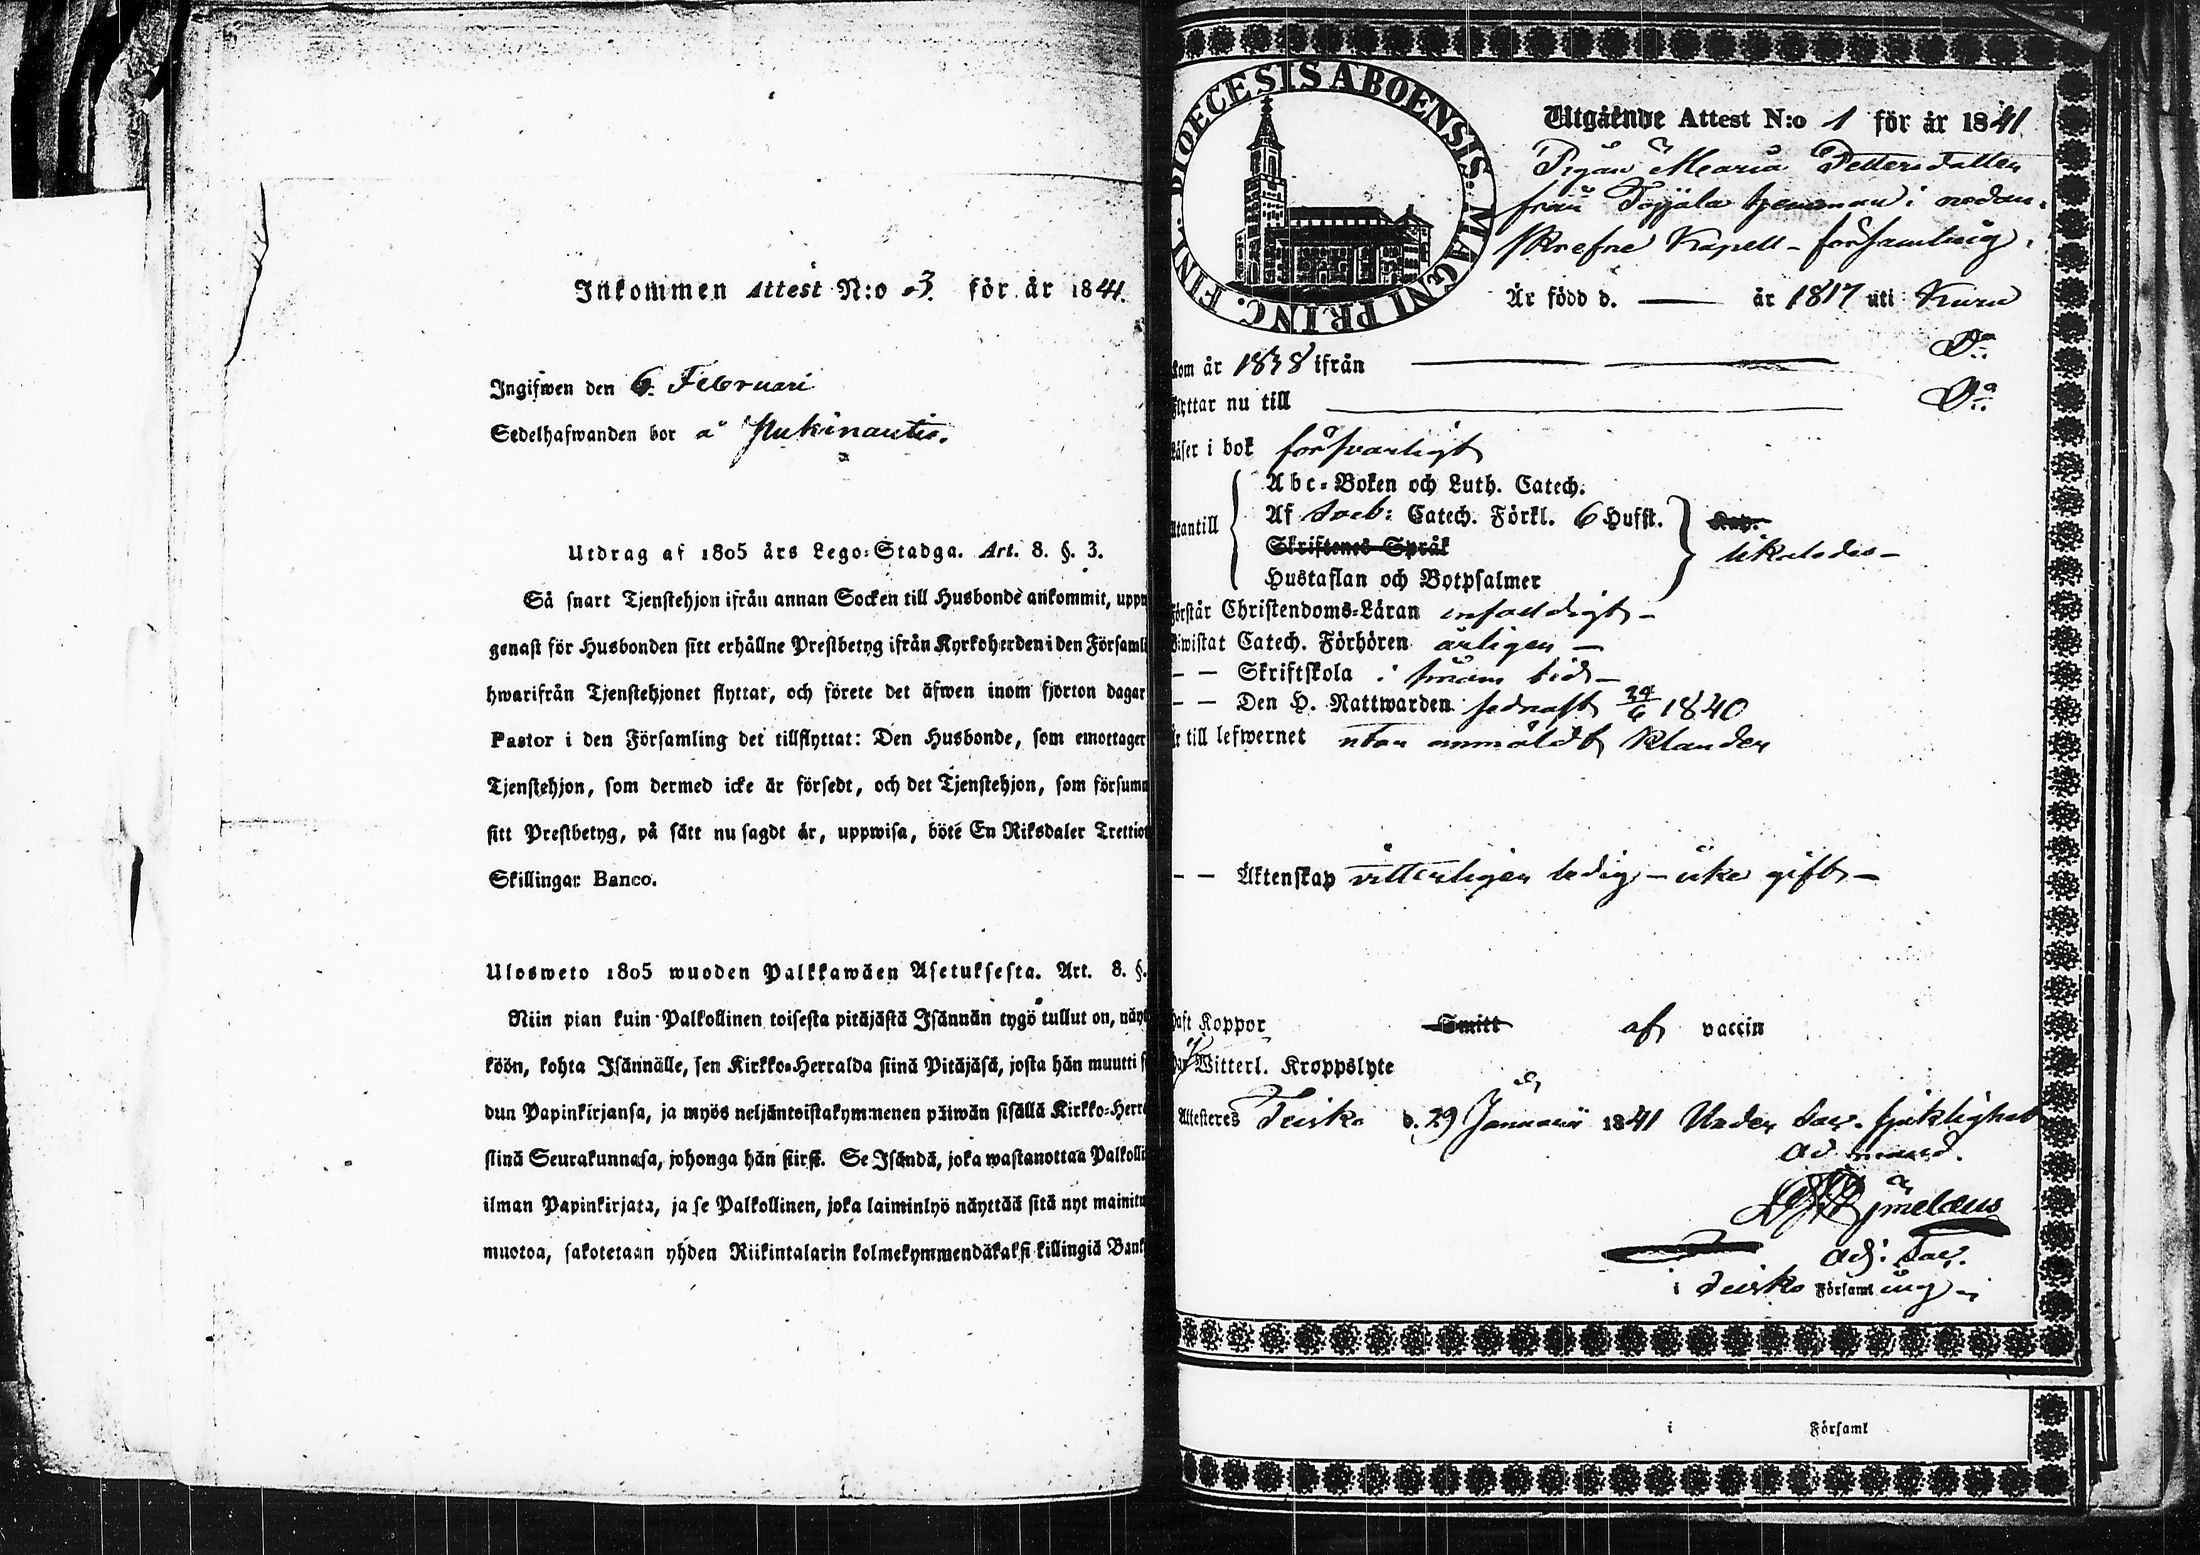 Inkommen Attest N:o 3. för år 1841.
Ingifwen den 6. Februari
Sedelhafwanden bor å
Utdrag af 1805 års Lego-Stadga. Art. 8. §. 3.
Så snart Tjenstehjon ifrån annan Socken till Husbonde ankommit, uppw
genast för Husbonden sitt erhållne Prestbetyg ifrån Kyrkoherden i den Församli
hwarifrån Tjenstehjonet flyttat, och förete det äfwen inom fjorton dagar
Pastor i den Församling det tillflyttat: Den Husbonde, som emottager
Tjenstehjon, som dermed icke är försedt, och det Tjenstehjon, som försumm
sitt Prestbetyg, på sätt nu sagdt är, uppwisa, böte En Riksdaler Trettio
Skillingar Banco.
Ulosweto 1805 wuoden Palkkawäen Asetuksesta. Art. 8. §.
Niin pian kuin Palkollinen toisesta pitäjästä Isännän tygö tullut on, näyt
köön, kohta Isännälle, sen Kirkko-Herralda siinä Pitäjäsä, josta hän muutti s
dun Papinkirjansa, ja myös neljäntoistakymmenen päiwän sisällä Kirkko-Herra
siinä Seurakunnasa, johonga hän siirsi. Se Isändä, joka wastanottaa Palkolli
ilman Papinkirjata, ja se Palkollinen, joka laiminlyö näyttää sitä nyt mainitu
muotoa, sakotetaan yhden Riikintalarin kolmekymmendäkaksi killingiä Bank
FINL. DIOECESIS ABOENSIS. MAGNI PRINC.
Utgående Attest N:o 1 för år 1841
Pigan Maria Pettersdotter
från hemman i nedan-
skrefne Kapell-församling.
Är född d. — år 1817 uti Kuru
kom år 1838 ifrån — Do
flyttar nu till — Do
läser i bok försvarligt
Abc-Boken och Luth. Catech.
utantill Af Sveb: Catech. Förkl. 6 Hufst.
Skriftenes Språk likaledes —
Hustaflan och Botpsalmer
förstår Christendoms-Läran enfaldigt —
Biwistat Catech. Förhören årligen —
— — Skriftskola i sinom tid —
— — Den H. Nattwarden sednast 24/6 1840
är till lefwernet utan anmäldt klander
— — Äktenskap vitterligen ledig — icke gift —
haft Koppor Smitt af vaccin
Witterl. Kroppslyte
Attesteres Teisko d. 29 Januarii 1841 Under Sac.
ad mand.
adj: Sac.
i Teisko Församling —
i Församl